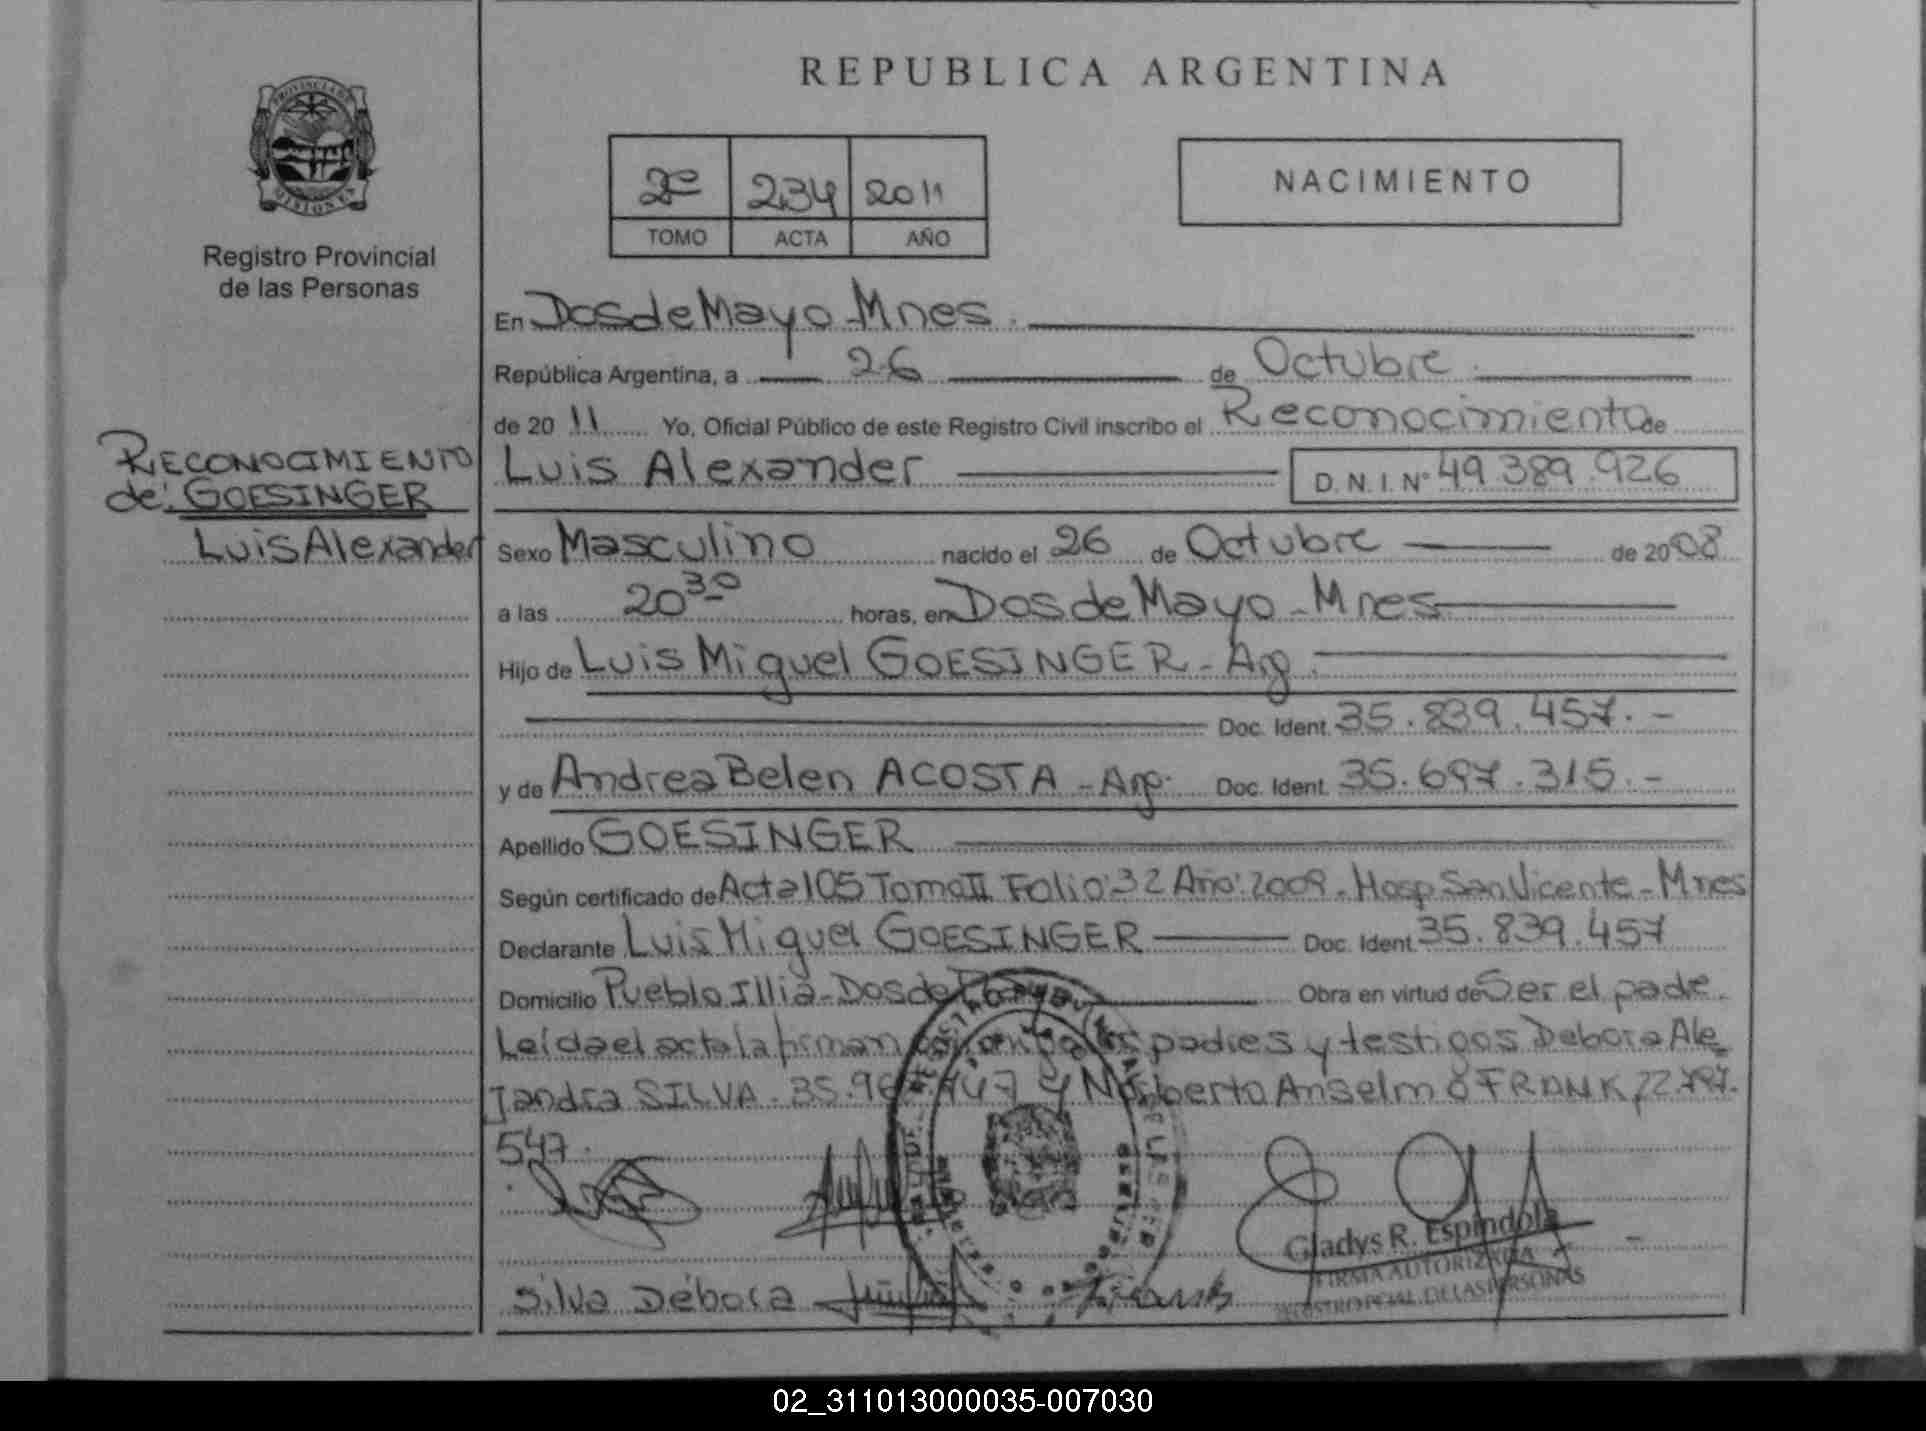 REPUBLICA ARGENTINA
PROVINCIA DE
MISIONES
Registro Provincial
de las Personas
2º 234 2011
TOMO ACTA AÑO
NACIMIENTO
En Dos de Mayo - Mnes.
República Argentina, a 26 de Octubre
de 2011 Yo, Oficial Público de este Registro Civil inscribo el Reconocimiento de
RECONOCIMIENTO
de: GOESINGER
Luis Alexander
Luis Alexander D.N.I. Nº 49.389.926
Sexo Masculino nacido el 26 de Octubre de 2008
a las 20 30 horas, en Dos de Mayo - Mnes
Hijo de Luis Miguel GOESINGER - Arg.
Doc. Ident. 35.839.457.-
y de Andrea Belen ACOSTA - Arg. Doc. Ident. 35.697.315.-
Apellido GOESINGER
Según certificado de Acta 105 Tomo II Folio: 32 Año: 2009. Hosp. San Vicente - Mnes
Declarante Luis Miguel GOESINGER Doc. Ident. 35.839.457
Domicilio Pueblo Illia - Dos de Mayo Obra en virtud de Ser el padre.
Leída el acta la firman los padres y testigos Debora Ale
jandra SILVA. 35.96 447 y Norberto Anselmo FRANK, 22.797.
547.
Silva Débora
Frank
Gladys R. Espindola
FIRMA AUTORIZADA
REGISTRO PCIAL. DE LAS PERSONAS
02_311013000035-007030